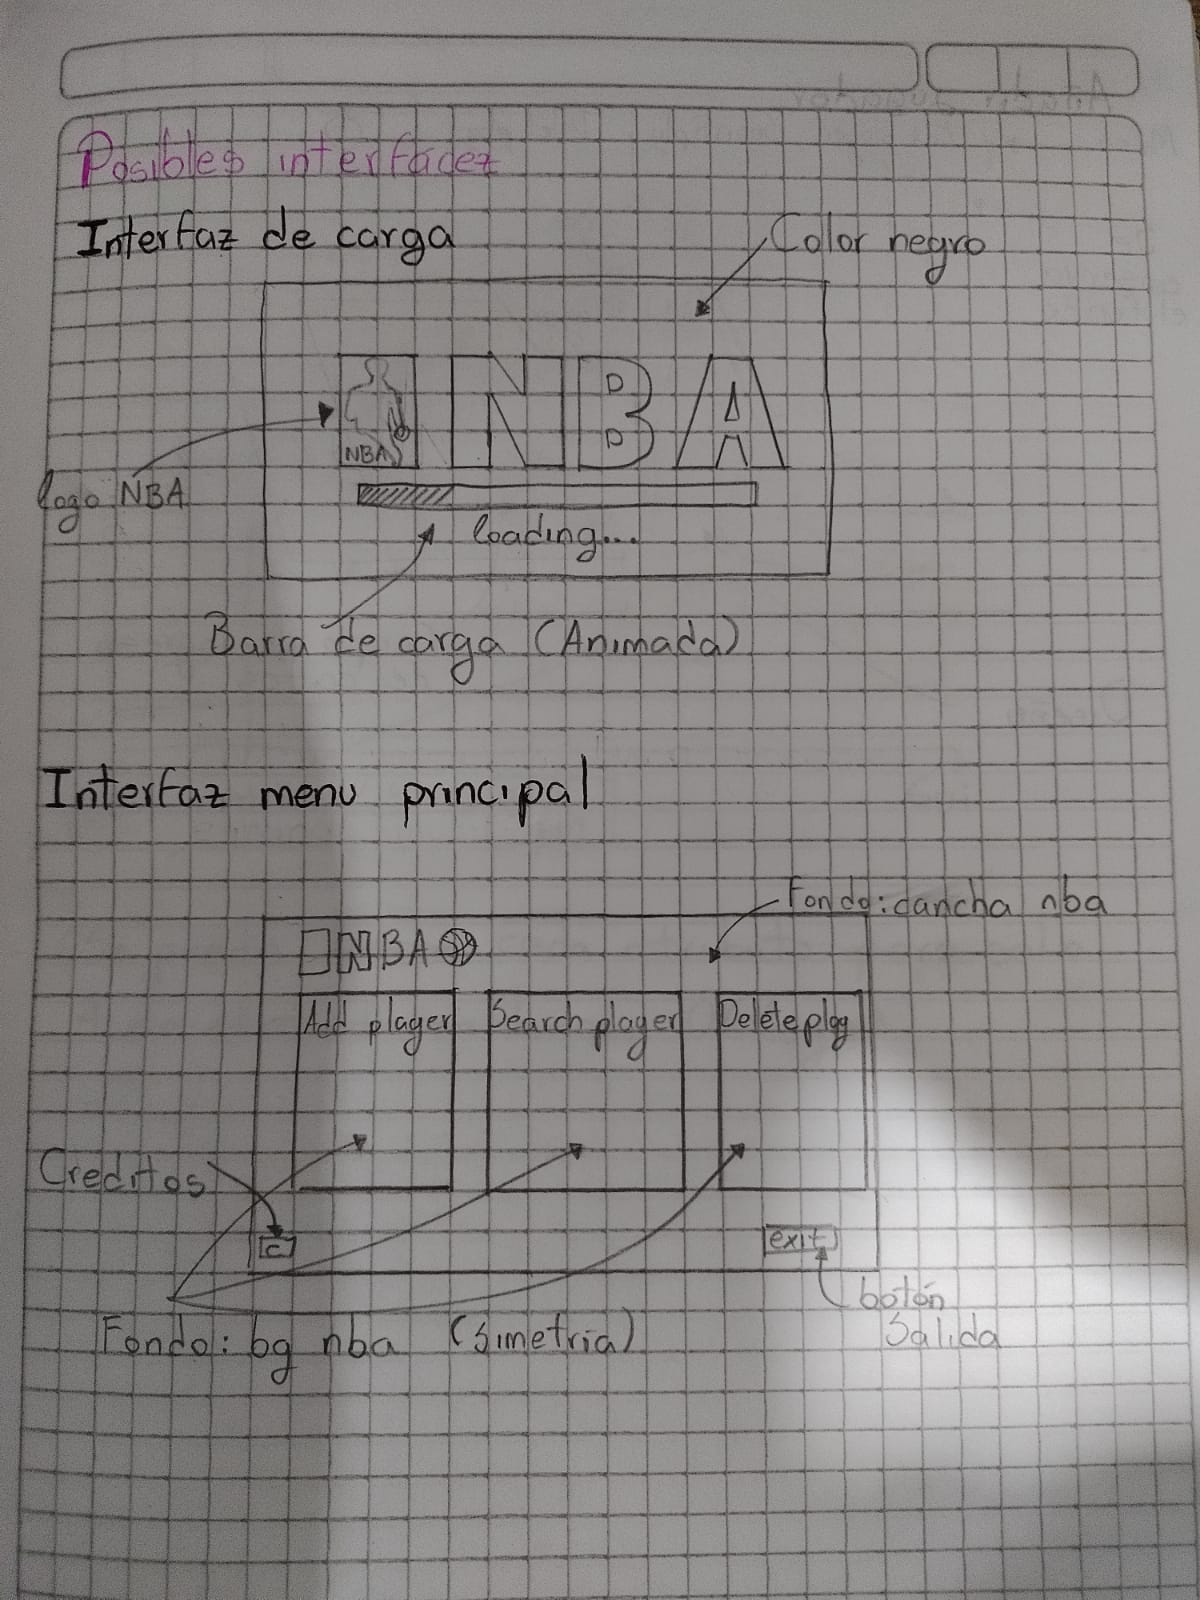 Posibles interfacez
Interfaz de carga
Color negro
NBA
NBA
logo NBA
loading...
Barra de carga (Animada)
Interfaz menu principal
Fondo: cancha nba
NBA
Add player
Search player
Delete play
Creditos
C
exit
botón
Salida
Fondo: bg nba (Simetria)